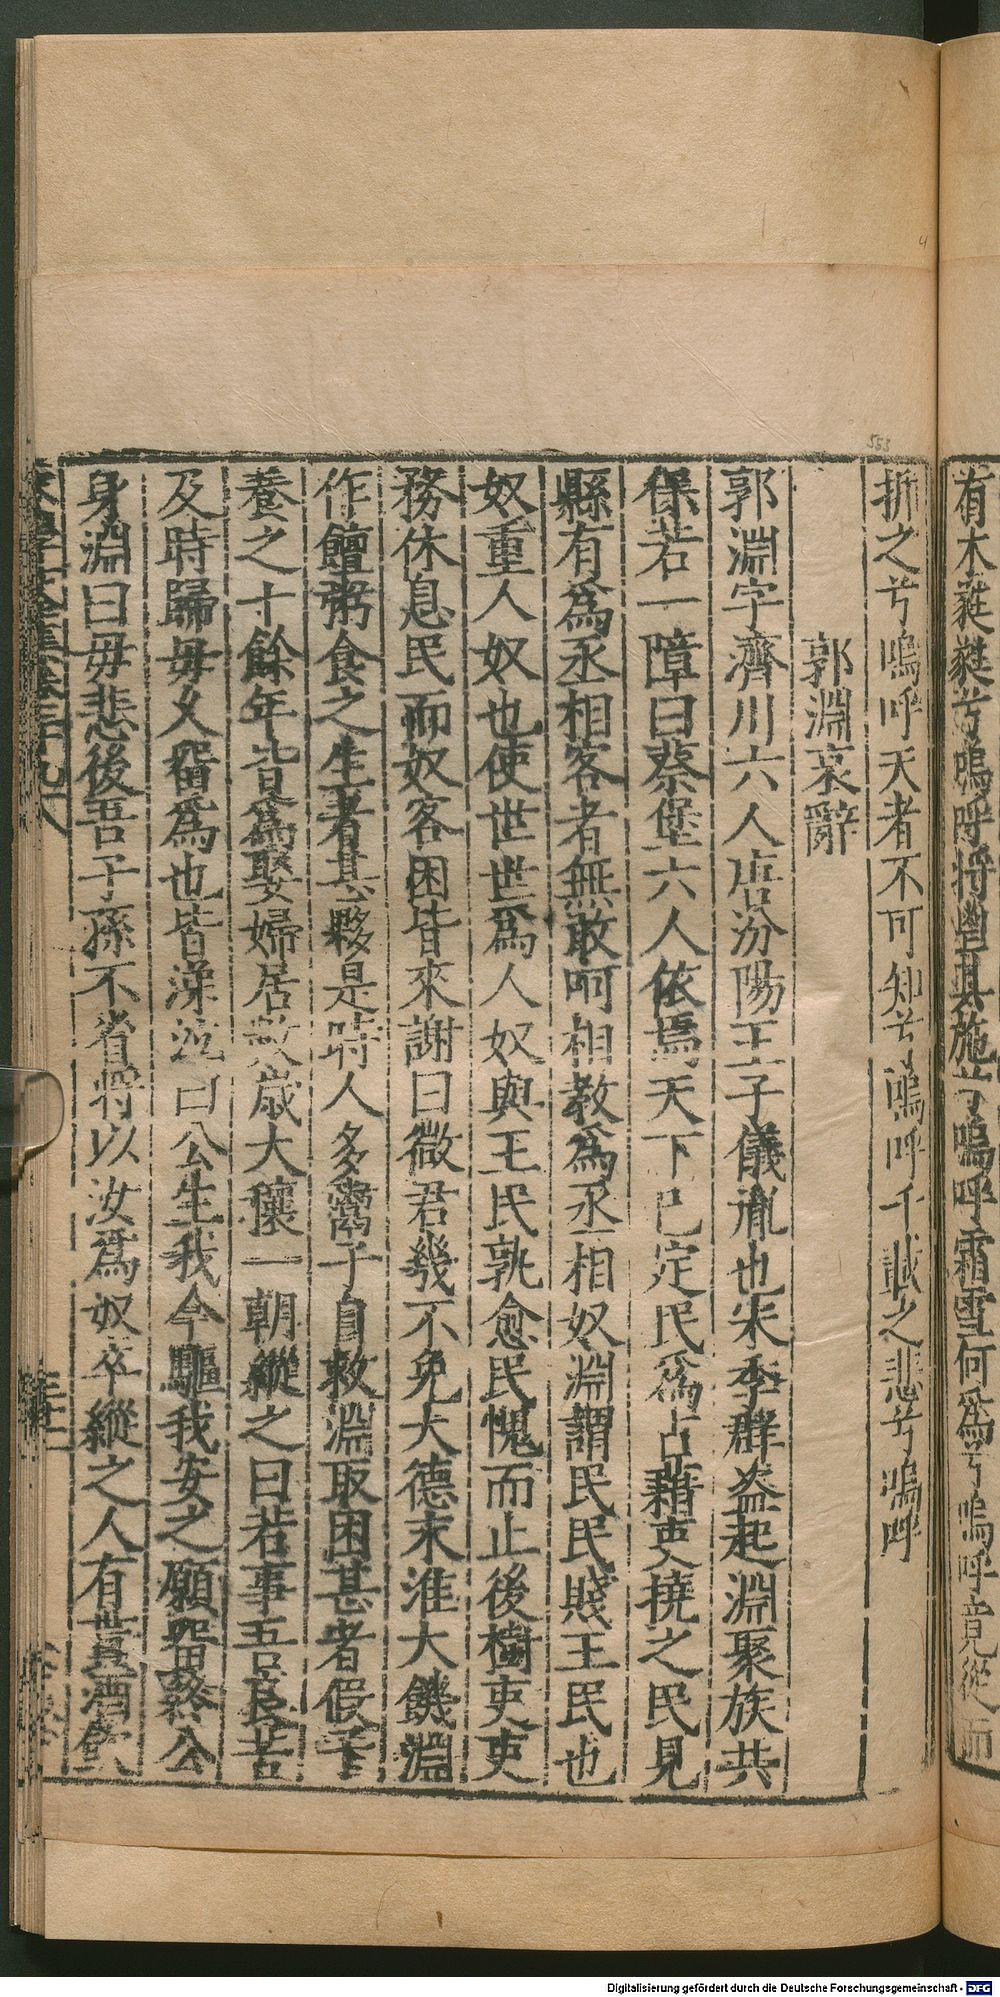 有木蕤蕤兮嗚呼將鬯其施兮嗚呼霜雪何爲兮嗚呼竟從而
折之兮嗚呼天者不可知兮嗚呼千載之悲兮嗚呼
郭淵哀辭
郭淵字濟川六人唐汾陽王子儀胤也宋季群盗起淵聚族共
保若一障曰蔡堡六人依焉天下已定民爲占藉吏撓之民見
縣有爲丞相客者無敢呵相教爲丞相奴淵謂民民賤王民也
奴重人奴也使世世爲人奴與王民孰愈民愧而止後樹吏吏
務休息民而奴客困皆來謝曰微君幾不免大德末淮大饑淵
作饘粥食之生者甚夥是時人多鬻子自救淵取困甚者假子
養之十餘年皆爲娶婦居數歲大穰一朝縱之曰若事吾良苦
及時歸毋乆畱爲也皆涕泣曰公生我今驅我安之願畱終公
身淵曰毋悲後吾子孫不省將以汝爲奴卒縱之人有賣酒飲
553
Digitalisierung gefördert durch die Deutsche Forschungsgemeinschaft - DFG